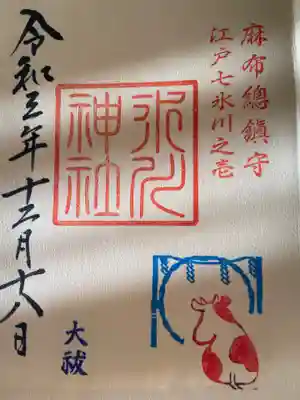 麻布總鎮守
江戸七氷川之壱
氷川
神社
令和三年十二月十八日
大祓